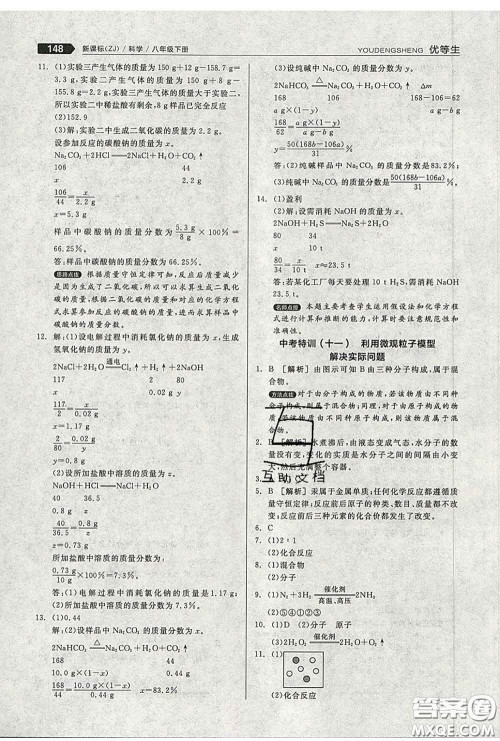 148 新课标(ZJ)/科学/八年级下册
YOUDENGSHENG 优等生
11. (1)实验三产生气体的质量为 150 g+12 g-158.7 g=
3.3 g,实验二产生气体的质量为 150 g+8 g-
155.8 g=2.2 g,实验三产生气体的质量大于实验二,
所以实验二中稀盐酸有剩余,8 g样品已完全反应
(2)152.9
(3)解:实验二中生成二氧化碳的质量为 2.2 g。
设参加反应的碳酸钠的质量为 x。
Na₂CO₃+2HCl═2NaCl+H₂O+CO₂↑
106 44
x 2.2 g
106/44=x/2.2 g
x=5.3 g
样品中碳酸钠的质量分数为 5.3 g/8 g×100%=
66.25%。
答:样品中碳酸钠的质量分数为 66.25%。
思路点拨 根据质量守恒定律可知,反应后质量减
少了,是因为反应生成了二氧化碳,所以能求出实
验中生成二氧化碳的质量,再结合对应的化学方程
式求算参加反应的碳酸钠的质量,进而求算样品中
碳酸钠的质量分数。
12. 解:(1)设电解过程中消耗氯化钠的质量为 x,生成
氢氧化钠的质量为 y。
2NaCl+2H₂O 通电 2NaOH+H₂↑+Cl₂↑
117 80 2
x y 0.2 g
117/2=x/0.2 g
x=11.7 g
80/2=y/0.2 g
y=8 g
(2)设所加盐酸中溶质的质量为 z。
NaOH+HCl═NaCl+H₂O
40 36.5
8 g z
40/36.5=8 g/z
z=7.3 g
所加盐酸中溶质的质量分数为
7.3 g/100 g×100%=7.3%。
答:(1)电解过程中消耗氯化钠的质量为 11.7 g。(2)
所加盐酸中溶质的质量分数为 7.3%。
13. (1)0.44
解:(2)设样品中 Na₂CO₃ 的质量分数为 x。
2NaHCO₃ △ Na₂CO₃+H₂O+CO₂↑
168 44
10.0 g×(1-x) 0.44 g
168/44=10.0 g×(1-x)/0.44 g
x=83.2%
(3)设纯碱中 Na₂CO₃ 的质量分数为 y。
2NaHCO₃ △ Na₂CO₃+H₂O+CO₂↑
168 106 168-106=62
a g×(1-y) a g-b g
168/62=a g×(1-y)/a g-b g
y=50(168b-106a)/31 %
答:(2)纯碱样品中 Na₂CO₃ 的质量分数是 83.2%;
(3)纯碱中 Na₂CO₃ 的质量分数是 50(168b-106a)/31 %
14. (1)盈利
(2)解:设需消耗 NaOH 的质量为 x。
2NaOH+H₂S═Na₂S+2H₂O
80 34
x 10 t
80/34=x/10 t x≈23.5 t
答:若某化工厂每天要处理 10 t H₂S,需消耗 NaOH
23.5 t。
名师点拨 本题主要考查学生运用假设法和化学方程
式进行计算和推断的能力,计算时要注意规范性和
准确性。
中考特训(十一) 利用微观粒子模型
解决实际问题
1. B [解析]由图示可知 B 由三种分子构成,属于混
合物。
方法点拨 对于由分子构成的物质,若该物质由不同种
分子构成,则属于混合物;对于由原子构成的
物质,若该物质由不同种原子构成,则属于混
合物。
2. B [解析]水煮沸后,由液态变成气态,水分子的数
量没有改变,分子的大小不变,水分子的间隔变
大,然后充满整个容器。
互助文档
5. B [解析]汞属于金属单质;任何化学反应都遵循
质量守恒定律,反应前后原子种类、数目、质量均不
改变;反应前后三种元素的化合价都发生了改变。
6. C
7. (1)2∶1
(2)化合反应
8. (1)混合物
(2)分子
9. (1)N₂+3H₂ 催化剂 高温、高压 2NH₃
(2)⑤④①②③
10. (1)D (2)分子 原子
(3)2H₂O₂ 催化剂 2H₂O+O₂↑
11. (1)
(2)化合反应
答案圈
MXQE.COM